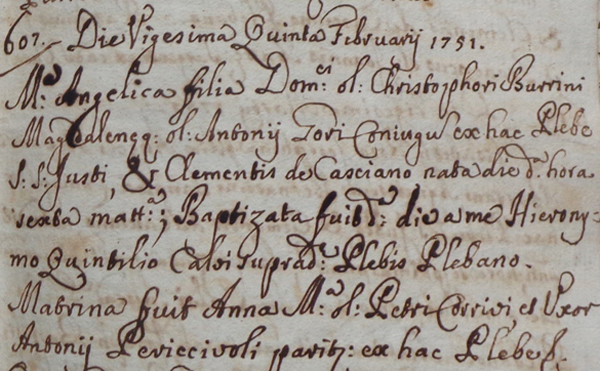 607. Die Vigesima Quinta Februarij 1751.
M.ª Angelica filia Dom.ci ol: Christophori Burrini
Magdalenęq: ol: Antonij Tori Coniugu' ex hac Plebe
S: S: Justi, & Clementis de Casciano nata die d.ª hora
sexta matt.ª; Baptizata fuit d.ª die a me Hierony=
mo Quintilio Calvi suprad.ę Plebis Plebano.
Matrina fuit Anna M.ª ol: Petri et Uxor
Antonij parit: ex hac Plebe